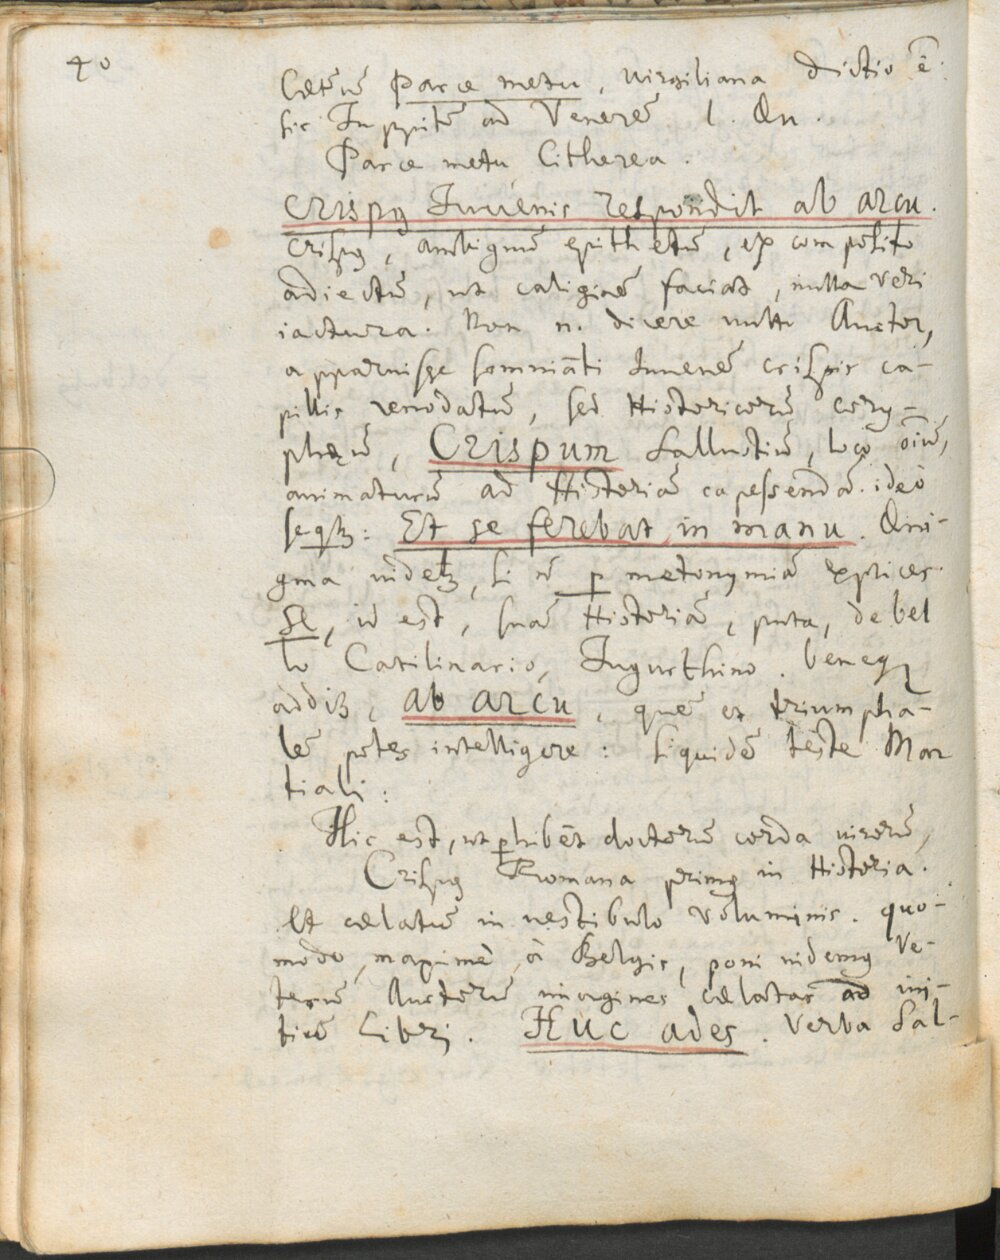 40
Cæterũ Parce metu, virgiliana dictio ẽ.
sic Juppitẽ ad Venerẽ 1. Æn.
Parce metu Citherea.
Crispꝰ Juvenis respondit ab arcu.
Crispꝰ, ambiguũ epithetũ, ex composito
adiectũ, ut caliginẽ faciat, nulla veri
iactura. Non n. dicere vult Auctor,
apparuisse somniãti Iuvenẽ crispis ca-
pillis renodatũ, sed Historicorũ cory-
phęũ, Crispum Sallustiũ, loco oĩuʒ,
animaturũ ad Historiã capessendã. ideò
seqꝛ: Et se ferebat in manu. Æni-
gma videtꝛ, si ñ ꝑ metonymiã explices
se, id est, suã Historiã, puta, de bel
lo Catilinario, Jugurthino. beneqꝫ
addiꝛ, ab arcu, quẽ et triumpha-
lẽ potes intelligere: siquidẽ teste Mar
tiali:
Hic est, ut ꝑhibẽt doctorũ corda virorũ,
Crispꝰ Romana primꝰ in Historia.
Et cælatũ in vestibulo voluminis. quo-
modo, maximè, à Belgis, poni videmꝰ Ve-
terũ Auctorũ imagines cælatas ad ini-
tiũ Libri. Huc ades. Verba Sal-